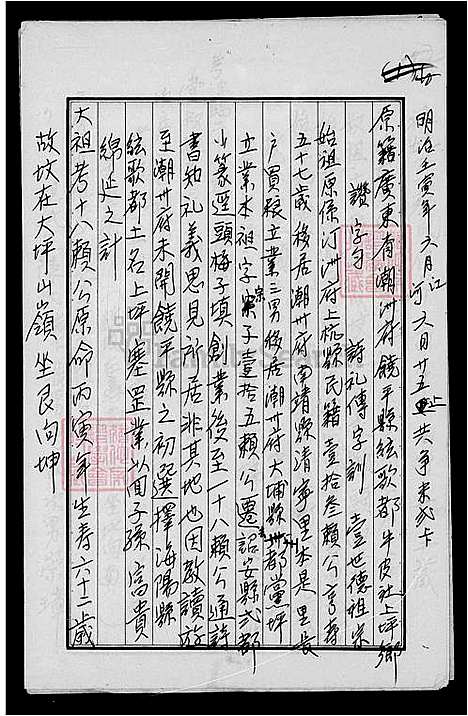 明治壬寅年六月訂 六月廿五 共爭
原籍廣東省潮州府饒平縣絃歌都牛皮社上坪鄉
讚字勻 詩礼傳字訓 壹世德祖宗
始祖原係汀洲府上杭縣民籍壹拾叁賴公享壽
五十七歲移居潮州府南靖縣清寧里本是里長
戶買糧立業三男移居潮州府大埔縣卅都黨坪
立業本祖字宗子壹拾五賴公遷詔安縣弍都
少篆逕頭梅子填創業後至一十八賴公通詩
書知礼義思見所居非其地也因教讀放
至潮州府未開饒平縣之初選擇海陽縣
絃歌都土名上坪塞罡業以啚子孫富貴
綿延之計
大祖考十八賴公原命丙寅年生寿六十二歲
故坟在大坪山嶺坐艮向坤